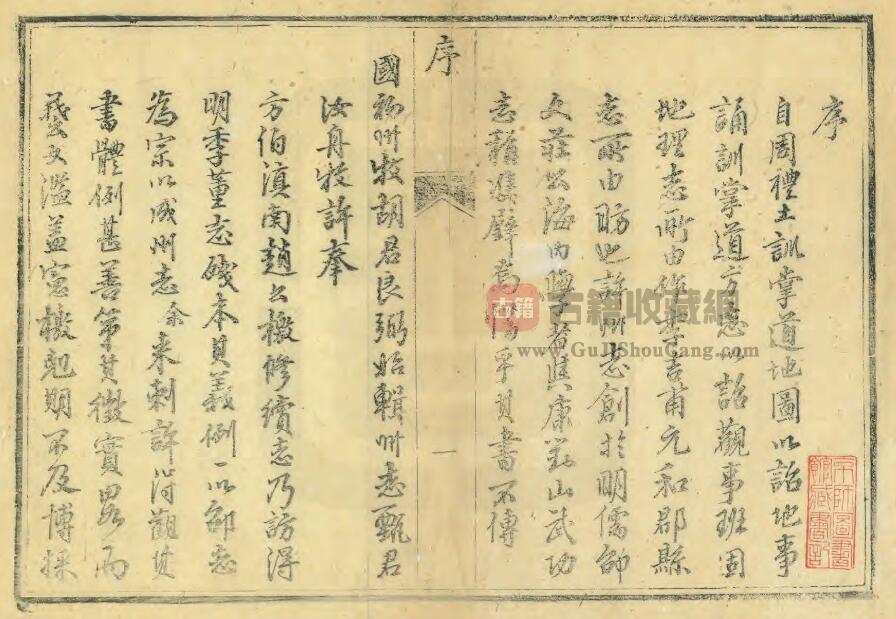 序
自周禮土訓掌道地圖以詔地事
誦訓掌道方志以詔觀事班固
地理志所由作李吉甫元和郡縣
志所由昉也許州志創於明儒邵
文莊公海内學者與康對山武功
志稱雙璧焉惜乎其書不傳
序
一
國初州牧胡君良弼始輯州志甄君
汝舟牧許奉
方伯滇南趙公檄修續志乃訪得
明季董志殘本其義例一以邵志
為宗以成州志余来刺許得觀其
書體例甚善第其徵實畧而
藝文濫蓋憲檄尅期不及博採
京師圖書
館藏書記
古籍
古籍收藏網
www.GuJiShouCang.com